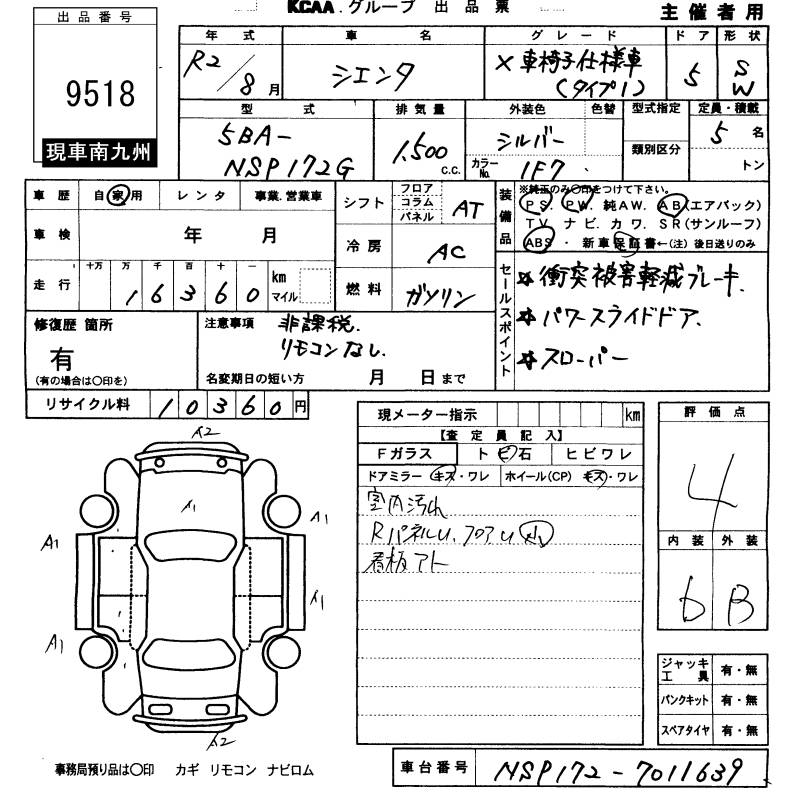 KCAA.グループ 出品票
主催者用
出品番号
9518
現車南九州
年式 車名 グレード ドア 形状
R2/8月 シエンタ X 車椅子仕様車 5 SW
(タイプ1)
型式 排気量 外装色 色替 型式指定 定員・積載
5BA- 1,500 シルバー 5名
NSP172G C.C. カラーNo. 1F7 類別区分 トン
車歴 自家用 レンタ 事業.営業車
シフト フロア コラム パネル AT
車検 年 月
冷房 AC
走行 十万 万 千 百 十 一
16360 km マイル
燃料 ガソリン
装備品 ※純正のみ○印をつけて下さい。
PS. PW. 純AW. AB(エアバック)
TV ナビ. カワ. SR(サンルーフ)
ABS ・ 新車保証書←(注)後日送りのみ
セールスポイント
☆衝突被害軽減ブレーキ.
☆パワースライドドア.
☆スローパー
修復歴 箇所
有
(有の場合は○印を)
注意事項 非課税.
リモコンなし.
名変期日の短い方 月 日まで
リサイクル料 10360円
現メーター指示 km
【査定員記入】
Fガラス トビ石 ヒビワレ
ドアミラー キズ・ワレ ホイール(CP) キズ・ワレ
室内汚れ
RパネルU、フロアU
看板アト
評価点
4
内装 外装
b B
ジャッキ工具 有・無
パンクキット 有・無
スペアタイヤ 有・無
A2
A1
A1
A1
A1
A1
A2
事務局預り品は○印 カギ リモコン ナビロム
車台番号 NSP172-7011639